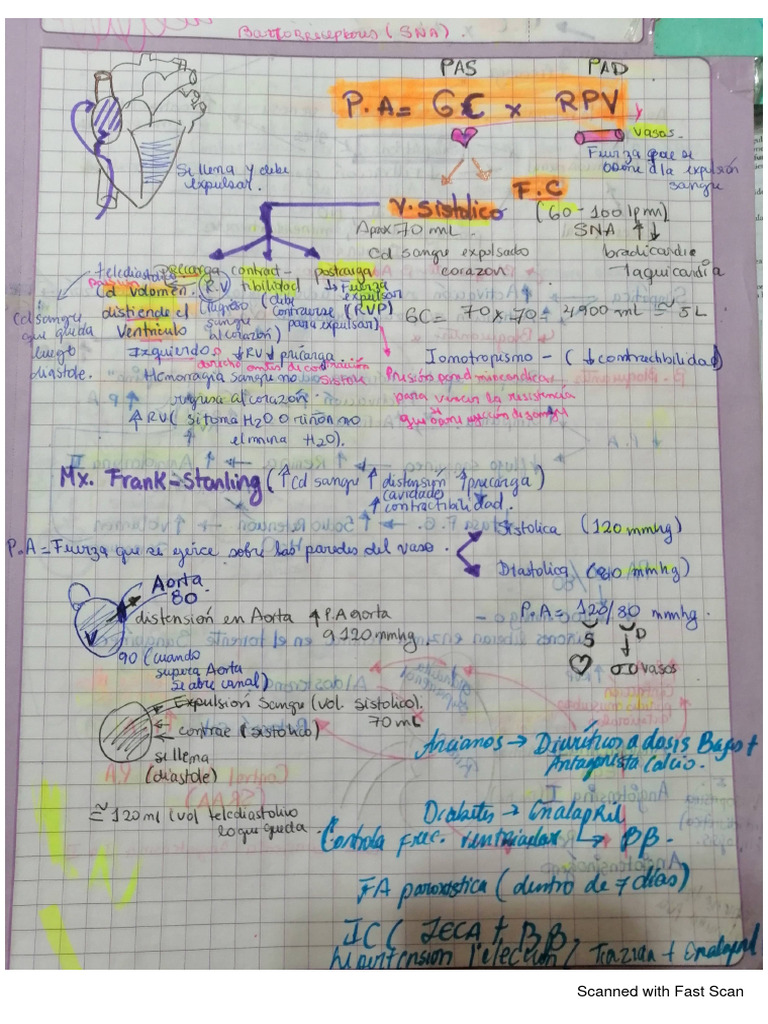 Barorreceptores (SNA)
PAS PAD
P.A = GC x RPV
vasos
Fuerza que se
opone a la expulsión
sangre
Se llena y debe
expulsar.
F.C
V. Sistólico (60-100 lpm)
Aprox 70 mL SNA ↑↓
Cd sangre expulsado bradicardia
corazon Taquicardia
telediastolico precarga contract- postcarga
Cd volumen (R.V tibilidad ↳ fuerza
distiende el (ingreso (debe expulsar
Ventriculo sangre contraerse (RVP)
al corazón) para expulsar)
Izquierdo ↓RV ↓ precarga
derecho antes de contracción
sistole
Cd sangre
que queda
luego
diastole.
GC = 70 x 70 = 4900 mL ≅ 5L
Hemorragia sangre no
regresa al corazón
↑RV ( si toma H2O o riñon no
↑ elmina H2O).
Iomotropismo - ( ↓ contractibilidad)
para vencer la resistencia
Mx. Frank-Stanling ( ↑ Cd sangre ↑ distensión ↑ precarga )
cavidad
↑ contractibilidad.
P.A = Fuerza que se ejerce sobre las paredes del vaso.
Sistolica (120 mmhg)
Diastolica (80 mmhg)
Aorta
80
distensión en Aorta ↑ P.A aorta
a 120 mmhg.
V
90 (cuando
supera Aorta
se abre canal)
P.A = 120/80 mmhg.
S D
vasos
Expulsión sangre (vol. sistolico).
70 mL
contrae (sistolico)
se llena
(diastole)
≅ 120 ml (vol telediastolivo
lo que queda.
Ancianos → Diuréticos a dosis Bajas +
Antagonista Calcio.
Diabetes → Enalapril
Controla Frec. ventricular ↳ BB.
FA paroxistica (dentro de 7 días)
IC ( IECA + BB
Scanned with Fast Scan